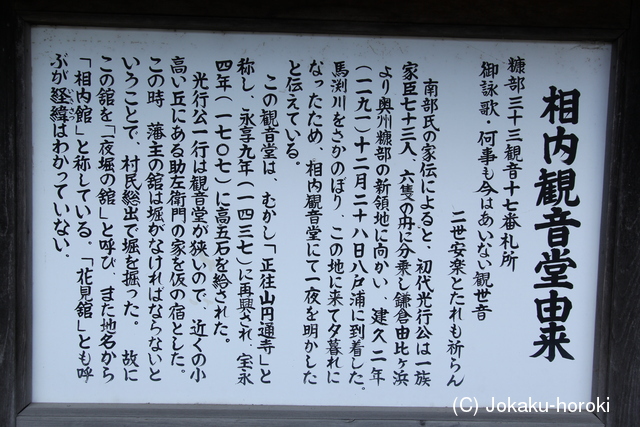 相内観音堂由来
糠部三十三観音十七番札所
御詠歌・何事も今はあいない観世音
二世安楽とたれも祈らん
南部氏の家伝によると、初代光行公は一族
家臣七十三人、六隻の舟に分乗し鎌倉由比ヶ浜
より奥州糠部の新領地に向かい、建久二年
(一一九一)十二月二十八日八戸浦に到着した。
馬渕川をさかのぼり、この地に来て夕暮れに
なったため、相内観音堂にて一夜を明かした
と伝えている。
この観音堂は、むかし「正往山円通寺」と
称し、永享九年(一四三七)に再興され、宝永
四年(一七〇七)に高五石を給された。
光行公一行は観音堂が狭いので、近くの小
高い丘にある助左衛門の家を仮の宿とした。
この時 藩主の舘は堀がなければならないと
いうことで、村民総出で堀を掘った。 故に
この舘を「夜堀の舘」と呼び、また地名から
「相内舘」と称している。「花見舘」とも呼
ぶが経緯はわかっていない。
(C) Jokaku-horoki